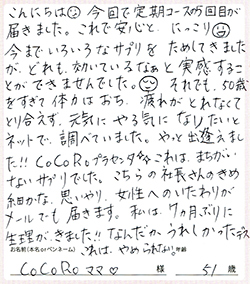 こんにちは☺ 今回で定期コースの5回目が
届きました。これで安心と、にっこり☺
今までいろいろなサプリを ためしてきました
が、どれも、効いているなぁと 実感するこ
とができませんでした。☺ それでも、50歳
をすぎて体力はおち、疲れがとれなくて
とり合えず、元気に やる気に なりたいと
ネットで、調べていました。やっと出逢えまし
た!! CoCoRoプラセンタ 
これは、まちがい
ないサプリです。こちらの社長さんのきめ
細かな、思いやり、女性へのいたわりが
メールでも 届きます。私は、7ヵ月ぶりに
生理がきました!! なんだか、うれしかったデス
これは、やめられない。
お名前(本名orペンネーム) 年齢
CoCoRo ママ♡ 様 51 歳